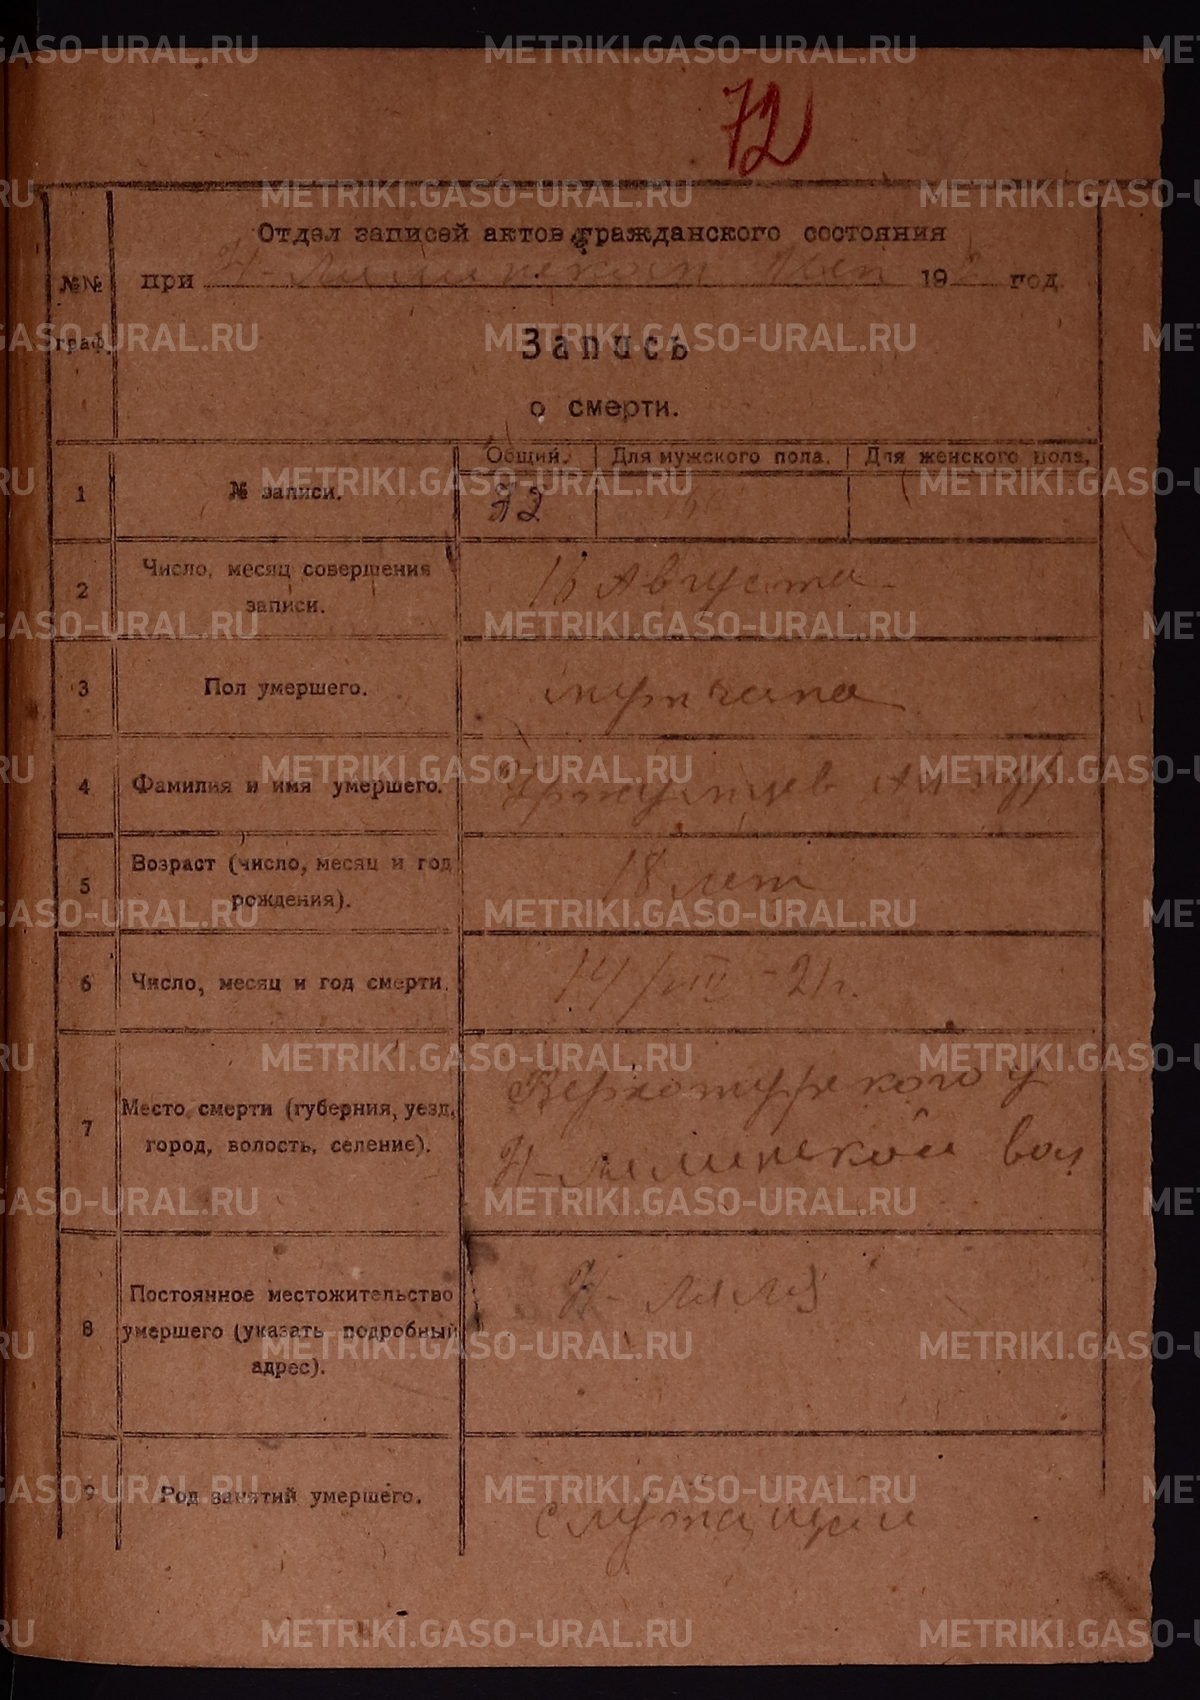 72
Отдел записей актов гражданского состояния
при Н-Лялинском 192 год.
№№
граф.
Запись
о смерти.
Общий. Для мужского пола. Для женского пола.
1 № записи. 72
2 Число, месяц совершения
записи.
16 Августа
3 Пол умершего. мужчина
4 Фамилия и имя умершего.
5 Возраст (число, месяц и год
рождения).
18 лет
6 Число, месяц и год смерти. 14/VIII-21г.
7 Место смерти (губерния, уезд,
город, волость, селение).
Верхотурского у
Н-Лялинской вол
8 Постоянное местожительство
умершего (указать подробный
адрес).
Н-Ляля
9 Род занятий умершего. служащий
METRIKI.GASO-URAL.RU